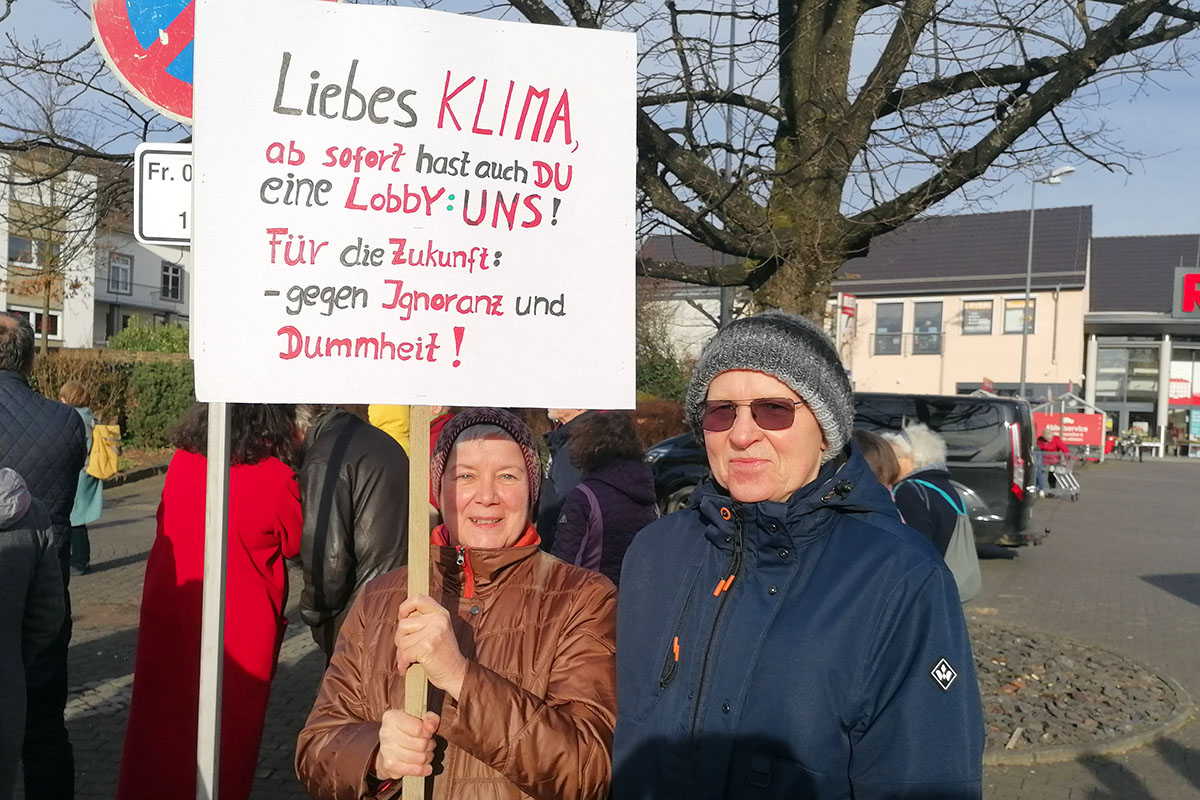 Liebes KLIMA,
ab sofort hast auch DU
eine LobbY: UNS!
Für die Zukunft:
- gegen Ignoranz und
Dummheit!
Fr. 0
1
R
service